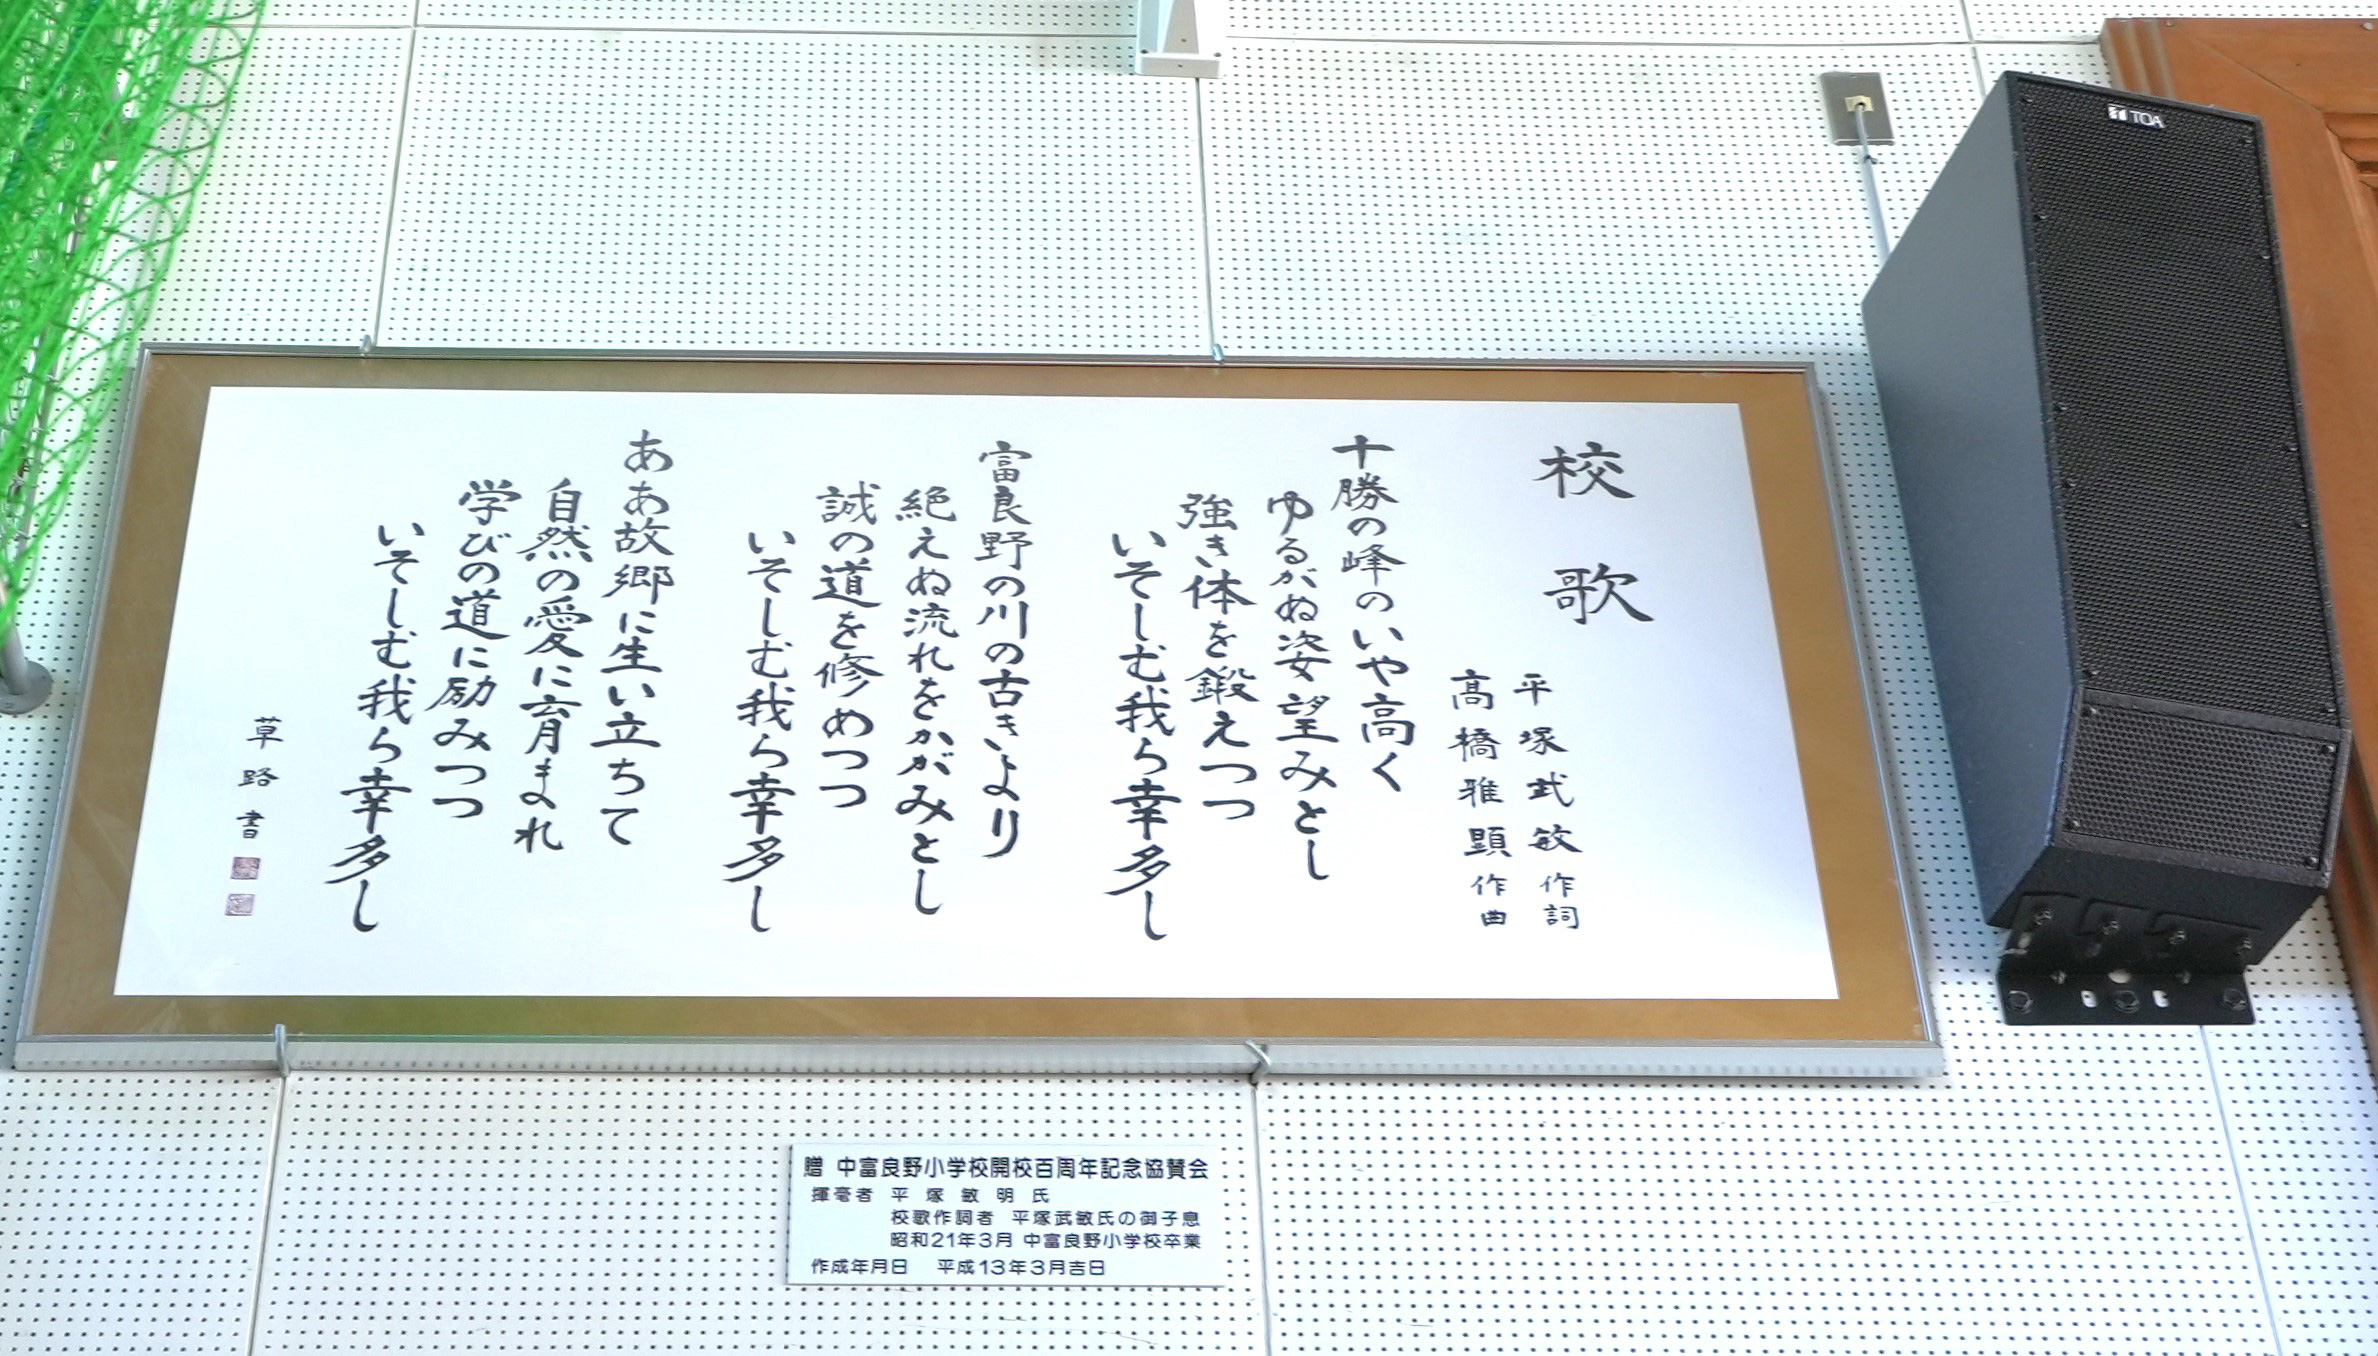 校歌
平塚武敏作詞
髙橋雅顕作曲
十勝の峰のいや高く
ゆるがぬ姿望みとし
強き体を鍛えつつ
いそしむ我ら幸多し
富良野の川の古きより
絶えぬ流れをかがみとし
誠の道を修めつつ
いそしむ我ら幸多し
ああ故郷に生い立ちて
自然の愛に育まれ
学びの道に励みつつ
いそしむ我ら幸多し
草路書
TOA
贈 中富良野小学校開校百周年記念協賛会
揮毫者 平塚敏明氏
校歌作詞者 平塚武敏氏の御子息
昭和21年3月 中富良野小学校卒業
作成年月日 平成13年3月吉日